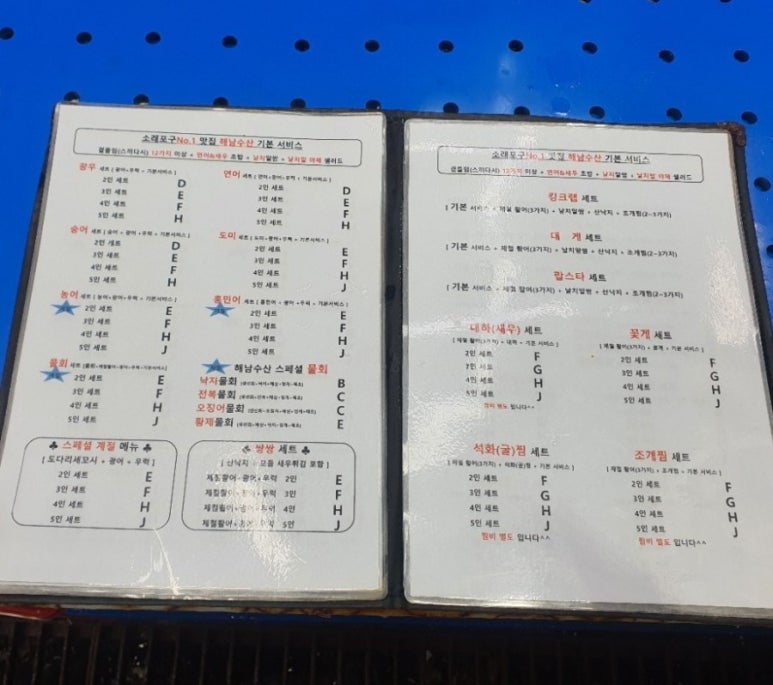 소래포구No.1 맛집 해남수산 기본 서비스
곁들임(스끼다시) 12가지 이상 + 연어&새우 초밥 + 날치알쌈 + 날치알 야채 샐러드
광우 세트 [ 광어 + 우럭 + 기본서비스 ]
2인 세트 D
3인 세트 E
4인 세트 F
5인 세트 H
연어 세트 [ 연어+광어+우럭 + 기본서비스 ]
2인 세트 D
3인 세트 E
4인 세트 F
5인 세트 H
숭어 세트 [ 숭어 + 광어+우럭 + 기본서비스 ]
2인 세트 D
3인 세트 E
4인 세트 F
5인 세트 H
도미 세트 [ 도미+광어+우럭 + 기본서비스 ]
2인 세트 E
3인 세트 F
4인 세트 H
5인 세트 J
농어 세트 [ 농어+광어+우럭 + 기본서비스 ]
2인 세트 E
3인 세트 F
4인 세트 H
5인 세트 J
홍민어 세트 [ 홍민어 + 광어 + 우럭 + 기본서비스 ]
2인 세트 E
3인 세트 F
4인 세트 H
5인 세트 J
물회 세트
2인 세트 E
3인 세트 F
4인 세트 H
5인 세트 J
해남수산 스페셜 물회
낙지물회 B
전복물회 C
오징어물회 C
황제물회 E
♣ 스페셜 계절 메뉴 ♣
[ 도다리세꼬시 + 광어 + 우럭 ]
2인 세트 E
3인 세트 F
4인 세트 H
5인 세트 J
♣ 쌍쌍 세트 ♣
[ 산낙지 + 모듬 새우튀김 포함 ]
제철활어+광어+우럭 2인 E
제철활어+광어+우럭 3인 F
제철활어+광어+우럭 4인 H
제철활어+광어+우럭 5인 J
소래포구No.1 맛집 해남수산 기본 서비스
곁들임(스끼다시) 12가지 이상 + 연어&새우 초밥 + 날치알쌈 + 날치알 야채 샐러드
킹크랩 세트
[ 기본 서비스 + 제철 활어(3가지) + 날치알쌈 + 산낙지 + 조개찜(2~3가지)
대 게 세트
[ 기본 서비스 + 제철 활어(3가지) + 날치알쌈 + 산낙지 + 조개찜(2~3가지)
랍스타 세트
[ 기본 서비스 + 제철 활어(3가지) + 날치알쌈 + 산낙지 + 조개찜(2~3가지)
대하(새우) 세트
[ 제철 활어(3가지) + 대하 + 기본 서비스 ]
2인 세트 F
3인 세트 G
4인 세트 H
5인 세트 J
찜비 별도 입니다^^
꽃게 세트
[ 제철 활어(3가지) + 꽃게 + 기본 서비스 ]
2인 세트 F
3인 세트 G
4인 세트 H
5인 세트 J
석화(굴)찜 세트
[ 제철 활어(3가지) + 석화(굴)찜 + 기본 서비스 ]
2인 세트 F
3인 세트 G
4인 세트 H
5인 세트 J
찜비 별도 입니다^^
조개찜 세트
[ 제철 활어(3가지) + 조개찜 + 기본 서비스 ]
2인 세트 F
3인 세트 G
4인 세트 H
5인 세트 J
찜비 별도 입니다^^